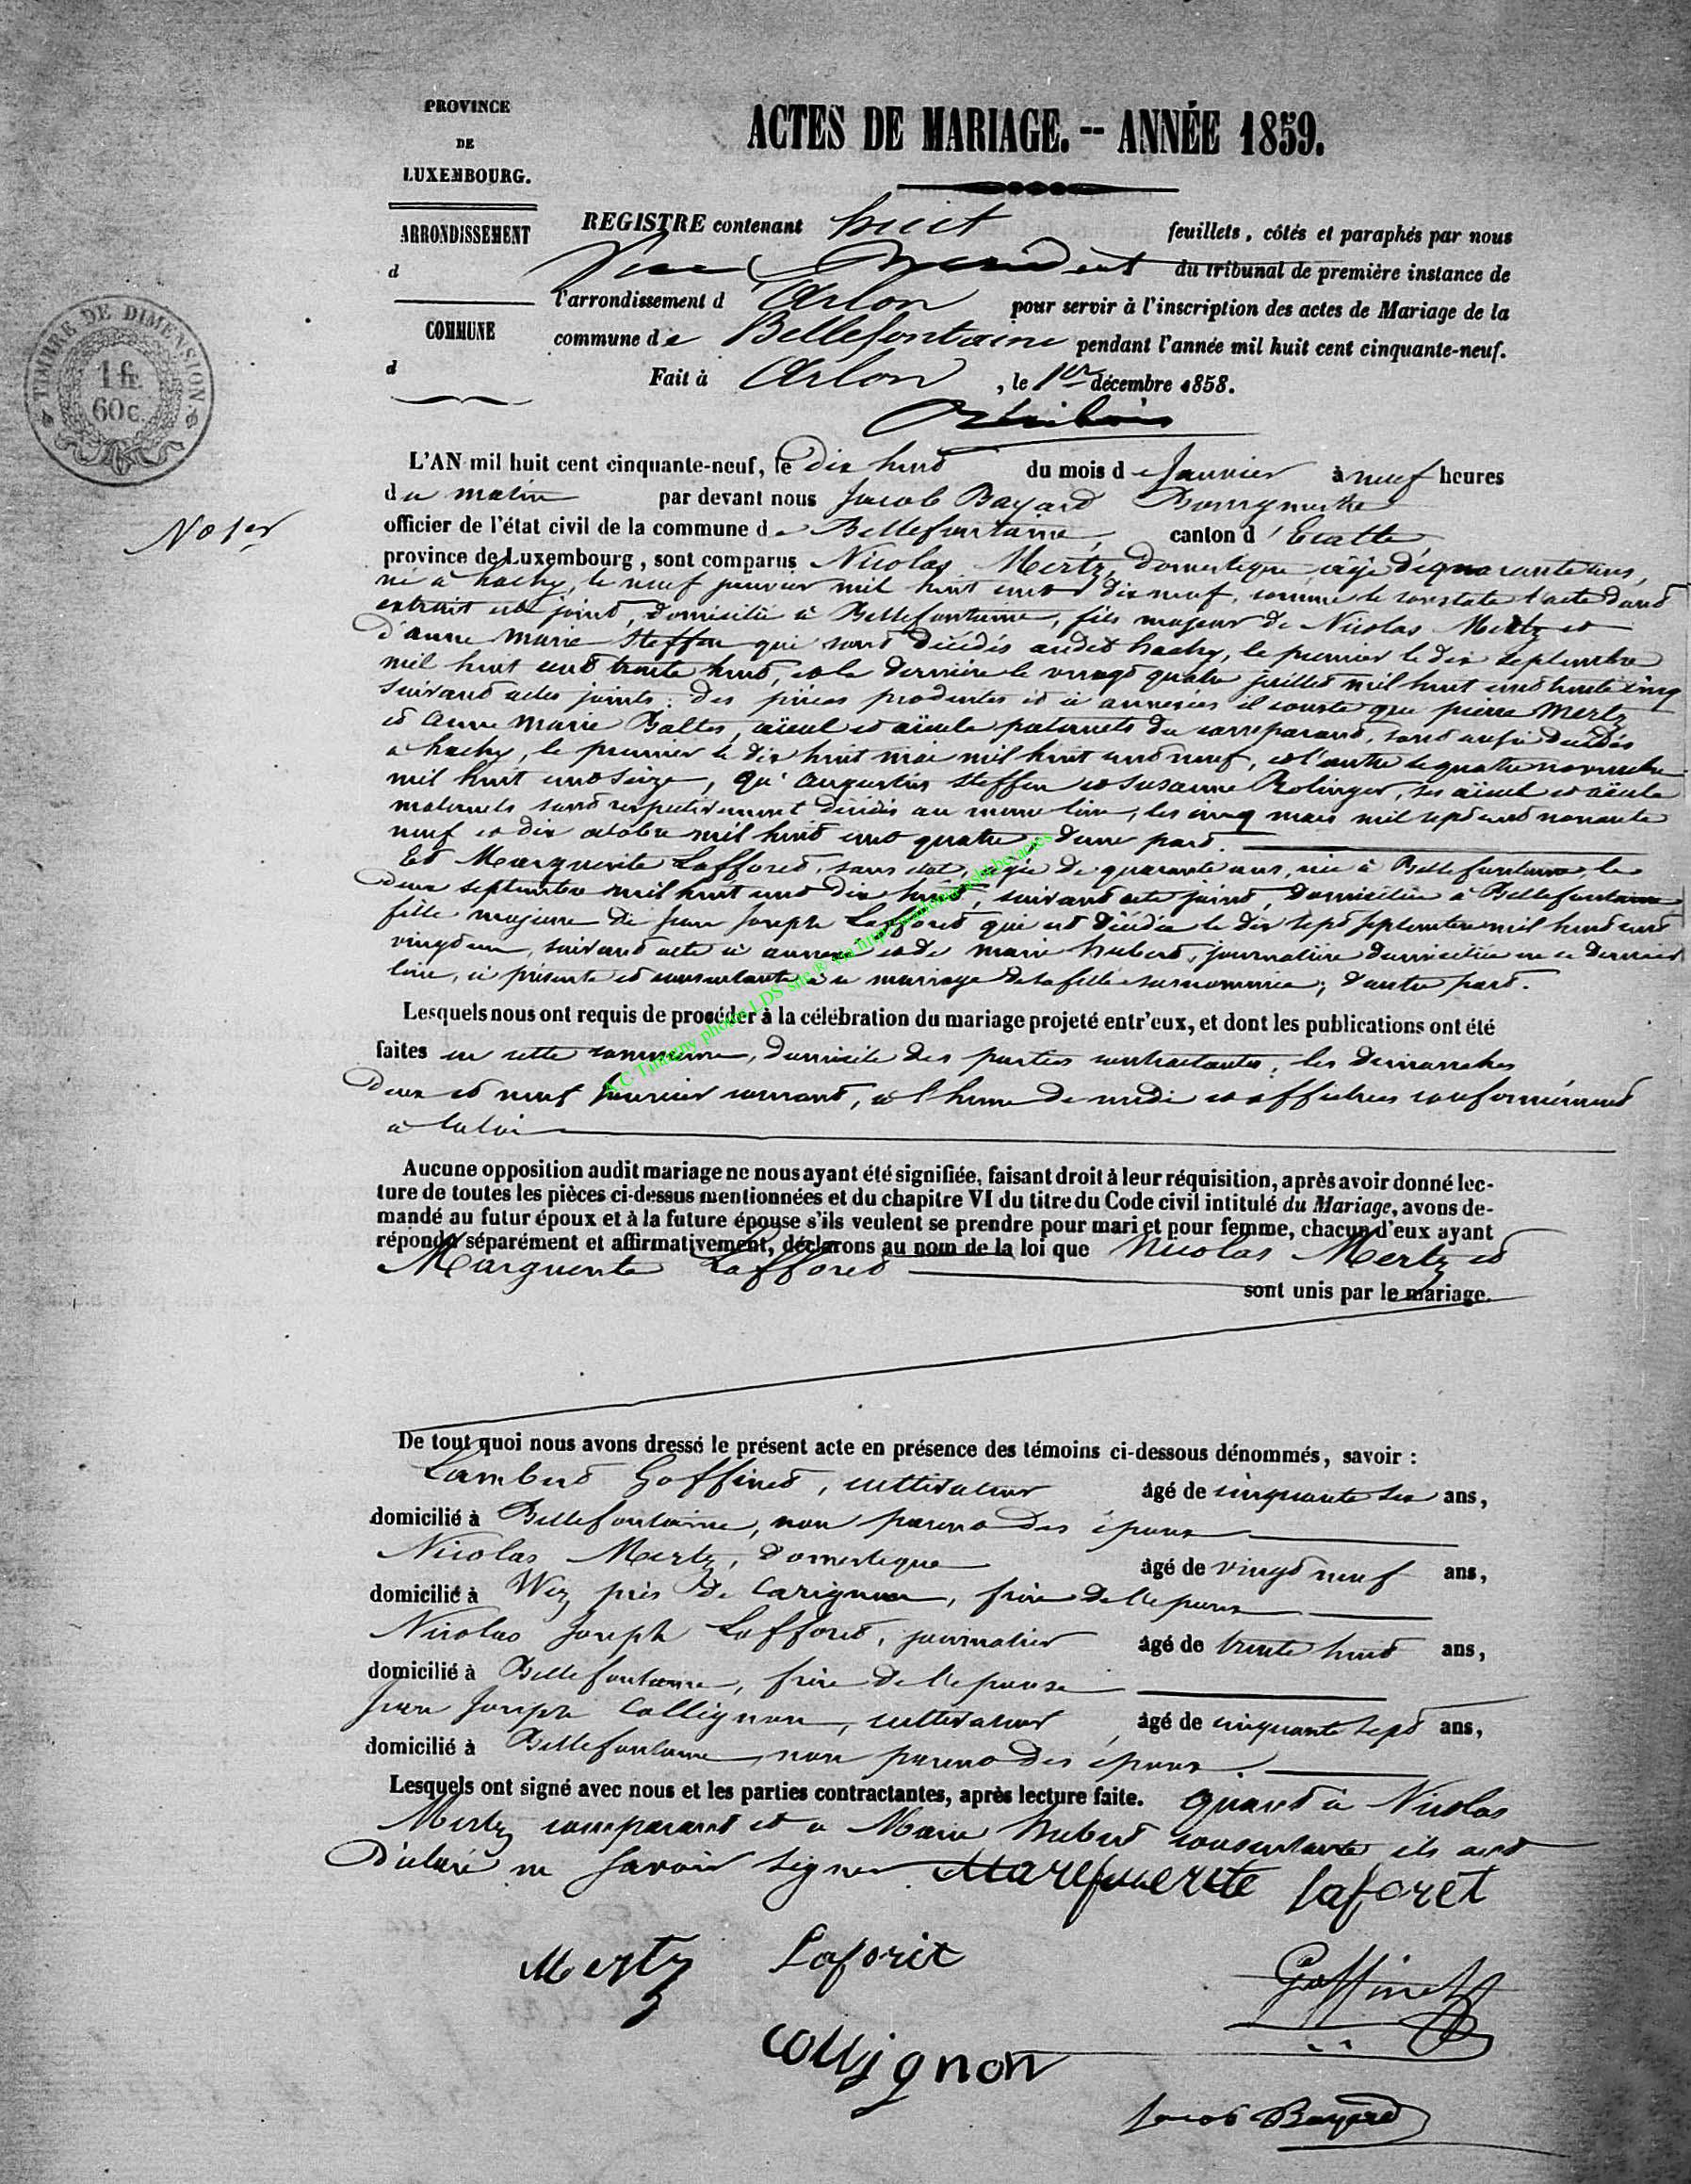 PROVINCE
DE
LUXEMBOURG.
ARRONDISSEMENT
d
COMMUNE
d
TIMBRE DE DIMENSION
1 fr.
60 c.
ACTES DE MARIAGE. -- ANNÉE 1859.
REGISTRE contenant huit feuillets, côtés et paraphés par nous
du tribunal de première instance de
l'arrondissement d'Arlon pour servir à l'inscription des actes de Mariage de la
commune de Bellefontaine pendant l'année mil huit cent cinquante-neuf.
Fait à Arlon, le 1er décembre 1858.
No 1er
L'AN mil huit cent cinquante-neuf, le dix huit du mois de Janvier à neuf heures
du matin par devant nous Jacob Bayard Bourgmestre
officier de l'état civil de la commune de Bellefontaine, canton d'Etalle
province de Luxembourg, sont comparus Nicolas Mertz, domestique âgé de quarante ans,
né à hachy, le neuf janvier mil huit cent dix neuf, comme le constate l'acte dont
extrait est joint, domicilié à Bellefontaine, fils majeur de Nicolas Mertz et
d'anne marie Steffen qui sont décédés audit hachy, le premier le dix septembre
mil huit cent trente huit, et la dernière le vingt quatre juillet mil huit cent trente cinq
suivant actes joints: des pièces produites et ci annexées il conste que pierre Mertz
et anne marie Baltes, aïeul et aïeule paternels du comparant, sont aussi décédés
a hachy, le premier le dix huit mai mil huit cent neuf, et l'autre le quatre novembre
mil huit cent seize, qu'augustin Steffen et susanne Rolinger, ses aïeul et aïeule
maternels sont respectivement décédés au même lieu, les cinq mars mil sept cent nonante
neuf et dix octobre mil huit cent quatre, d'une part.
Et Marguerite Lafforet, sans état, agée de quarante ans, née à Bellefontaine, le
deux septembre mil huit cent dix huit, suivant acte joint, domiciliée à Bellefontaine
fille majeure de jean joseph Lafforet qui est décédé le dix sept septembre mil huit cent
vingt un, suivant acte ci annexé et de marie hubert, journalière domiciliée en ce dernier
lieu, ci présente et consentante à ce mariage de sa fille surnommée; d'autre part.
Lesquels nous ont requis de procéder à la célébration du mariage projeté entr'eux, et dont les publications ont été
faites en cette commune, domicile des parties contractantes, les dimanches
deux et neuf Janvier courant, à l'heure de midi et affichées conformément
a la loi
Aucune opposition audit mariage ne nous ayant été signifiée, faisant droit à leur réquisition, après avoir donné lec-
ture de toutes les pièces ci-dessus mentionnées et du chapitre VI du titre du Code civil intitulé du Mariage, avons de-
mandé au futur époux et à la future épouse s'ils veulent se prendre pour mari et pour femme, chacun d'eux ayant
répondu séparément et affirmativement, déclarons au nom de la loi que Nicolas Mertz et
Marguerite Lafforet
sont unis par le mariage.
De tout quoi nous avons dressé le présent acte en présence des témoins ci-dessous dénommés, savoir :
Lambert Goffinet, cultivateur âgé de cinquante six ans,
domicilié à Bellefontaine, non parent des époux
Nicolas Mertz, domestique âgé de vingt neuf ans,
domicilié à Wez près de Carignan, frère de l'epoux
Nicolas Joseph Lafforet, journalier âgé de trente huit ans,
domicilié à Bellefontaine, frère de l'epouse
Jean Joseph Collignon, cultivateur, âgé de cinquante sept ans,
domicilié à Bellefontaine non parent des époux.
Lesquels ont signé avec nous et les parties contractantes, après lecture faite. quant à Nicolas
Mertz comparant et a Marie hubert consentante ils ont
déclaré ne savoir signer Marguerite laforet
Mertz Laforet Goffinet
collignon
Jacob Bayard